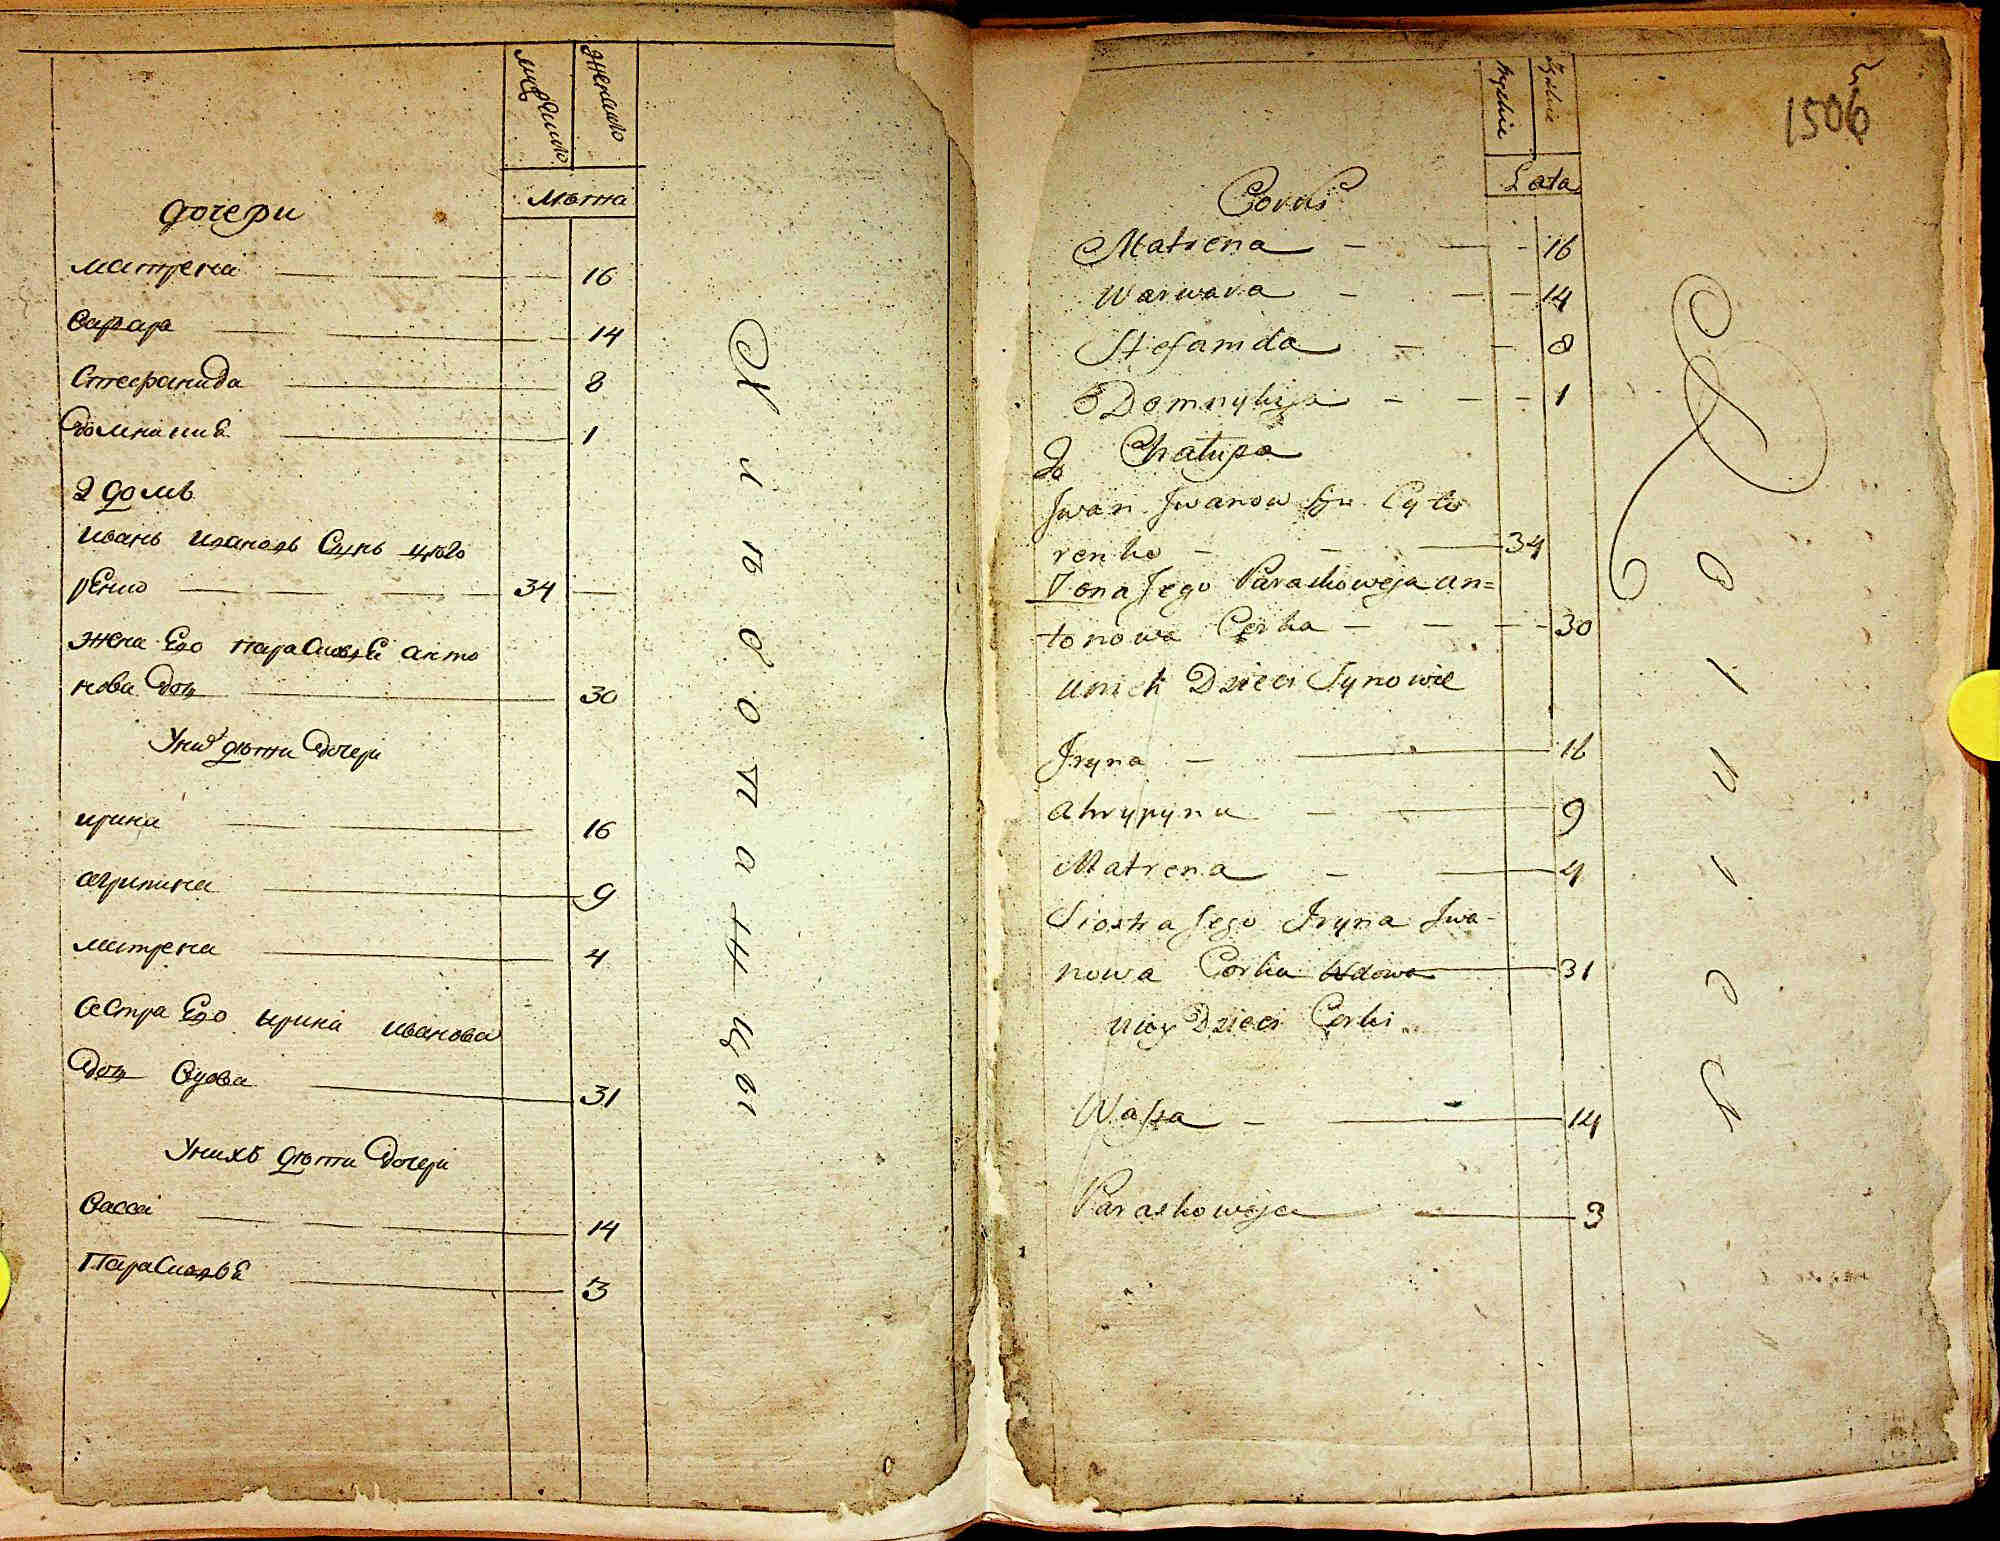 мужеско
женско
Лѣта
дочери
матрена 16
варвара 14
Стефанида 8
домникиа 1
2 домъ
иванъ ивановъ Сынъ цюго
рЕнко 34
жена Его параСковѣа анто
нова доч 30
Уних дѣти дочери
ирина 16
агрипина 9
матрена 4
сЕстра Его ирина иванова
доч вдова 31
Унихъ дѣти дочери
васса 14
ПараСковѣа 3
Lata
1506
Corki
Matrena 16
Warwara 14
Stefanida 8
Domnykija 1
2o Chatupa
Jwan Jwanow Syn
renko 34
Zona Jego Paraskoweja An=
tonowa Corka 30
unich Dzieci Synowie
Jryna 16
Ahrypyna 9
Matrena 4
Siostra Jego Jryna Jwa-
nowa Corka Wdowa 31
uiey Dzieci Corki
Wassa 14
Paraskoweja 3